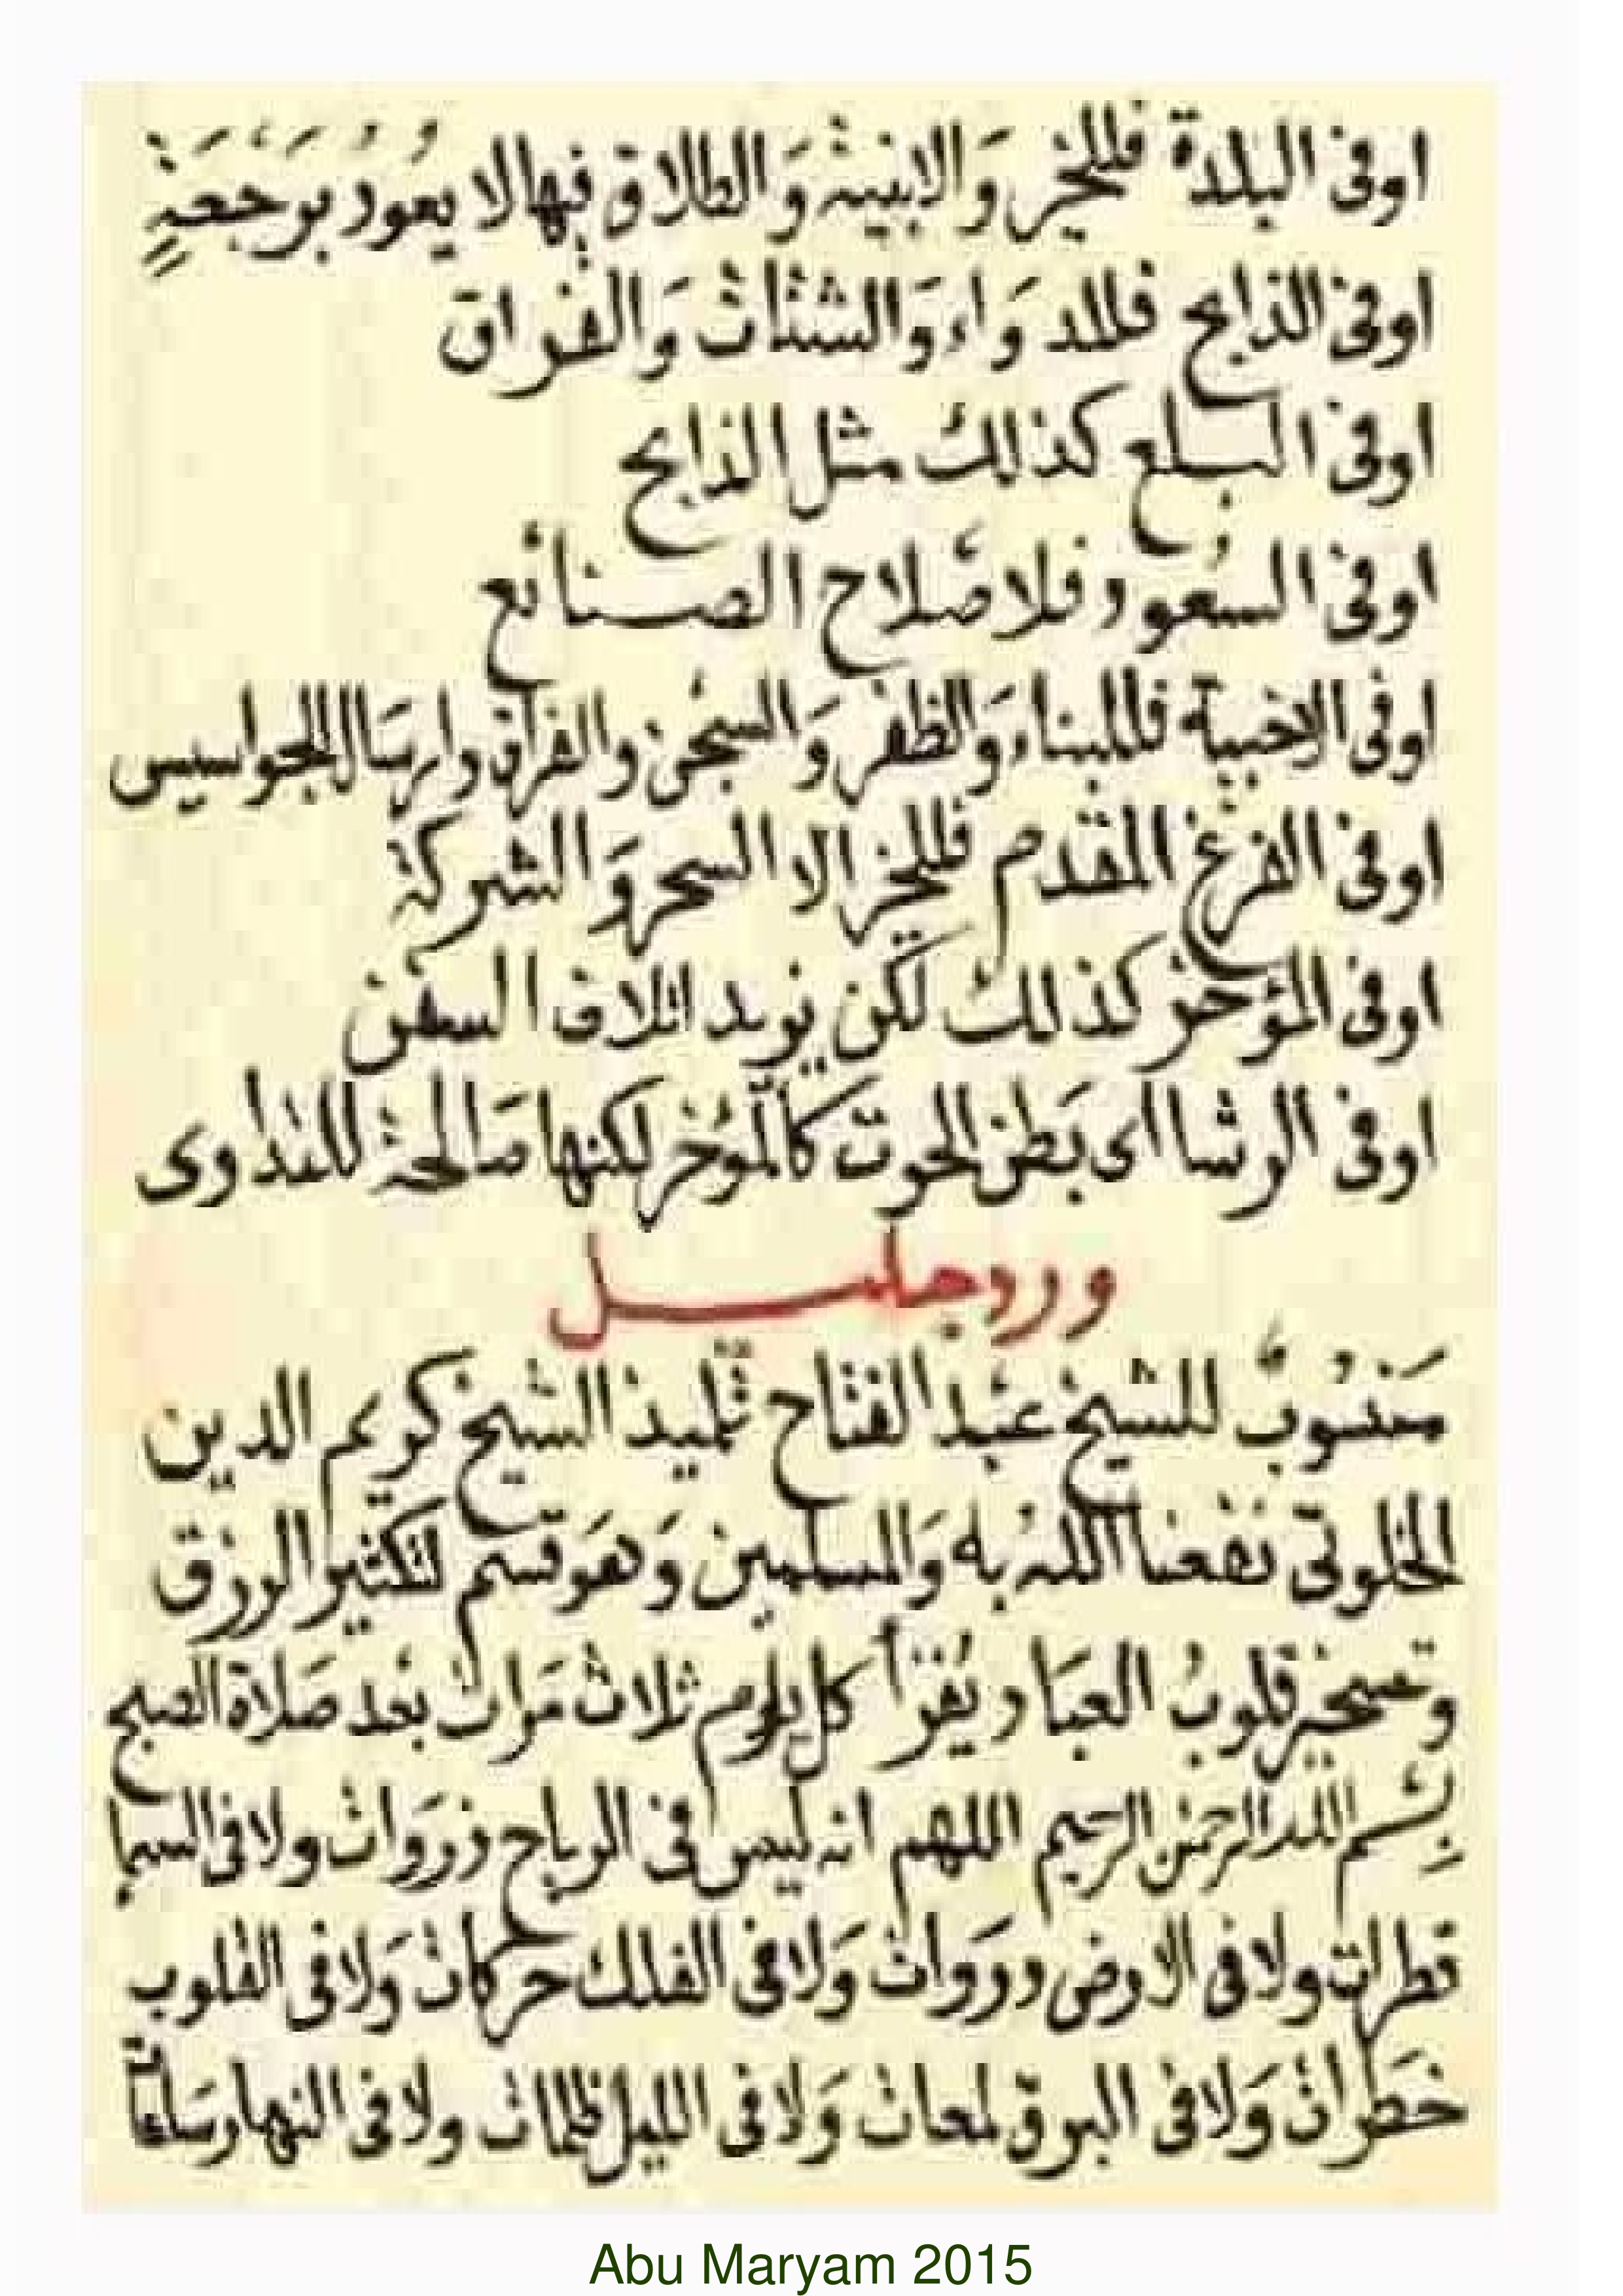 اوفى البلدة فللخير والابنيه والطلاق فيها لا يعود برجعة
اوفى الذابح فللدواء والشتات والفراق
اوفى البلع كذلك مثل الذابح
اوفى السعود فلاصلاح الصنائع
اوفى الاخبية فللبناء والظفر والسجن والفراق وارسال الجواسيس
اوفى الفرغ المقدم فللخير الا السحر والشركة
اوفى المؤخر كذلك لكن يزيد اتلاف السفن
اوفى الرشا اى بطن الحوت كالمؤخر لكنها صالحة للتداوى
ورد جليل
منسوب للشيخ عبد الفتاح تلميذ الشيخ كريم الدين
الخلوتى نفعنا الله به والمسلمين وهو قسم لتكثير الرزق
وتسخير قلوب العباد يقرأ كل يلوم ثلاث مرات بعد صلاة الصبح
بسم الله الرحمن الرحيم اللهم انه ليس فى الرياح ذروات ولا فى السما
قطرات ولا فى الارض دوروات ولا فى الفلك حركات ولا فى القلوب
خطرات ولا فى البرق لمعات ولا فى الليل ظلمات ولا فى النهار ساعات
Abu Maryam 2015